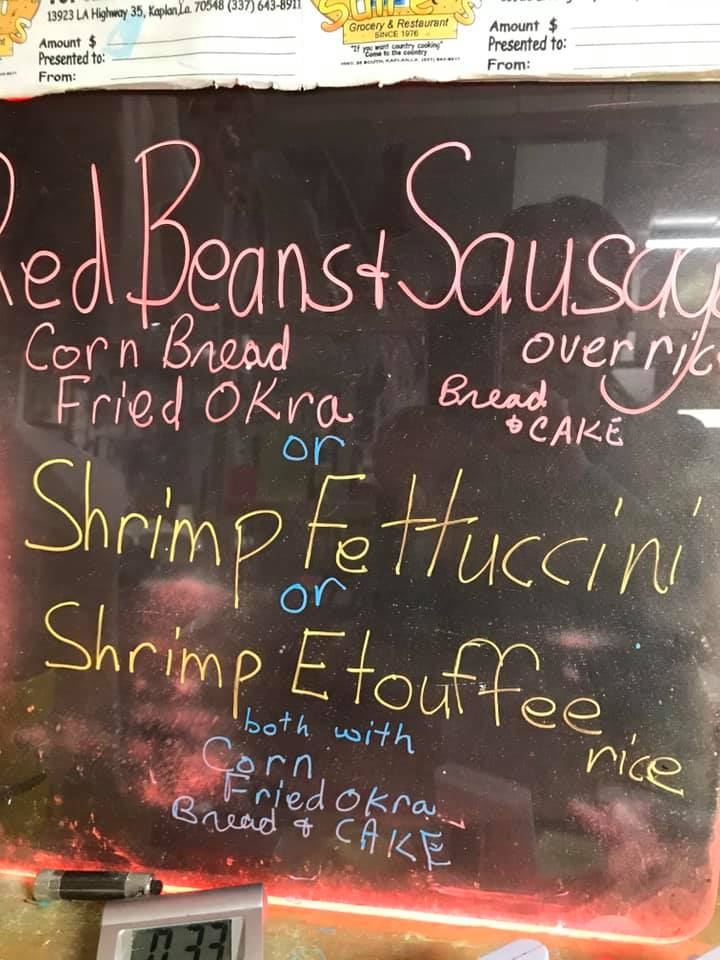 13923 LA Highway 35, Kaplan, La. 70548 (337) 643-8911
Amount $
Presented to:
From:
Grocery & Restaurant
SINCE 1976
"If you want country cooking"
"Come to the country"
Amount $
Presented to:
From:
Red Beans & Sausag
Corn Bread over ric
Fried OKra Bread
& CAKE
or
Shrimp Fettuccini
or
Shrimp Etouffee
rice
both with
Corn
Fried okra
Bread & CAKE
0.33